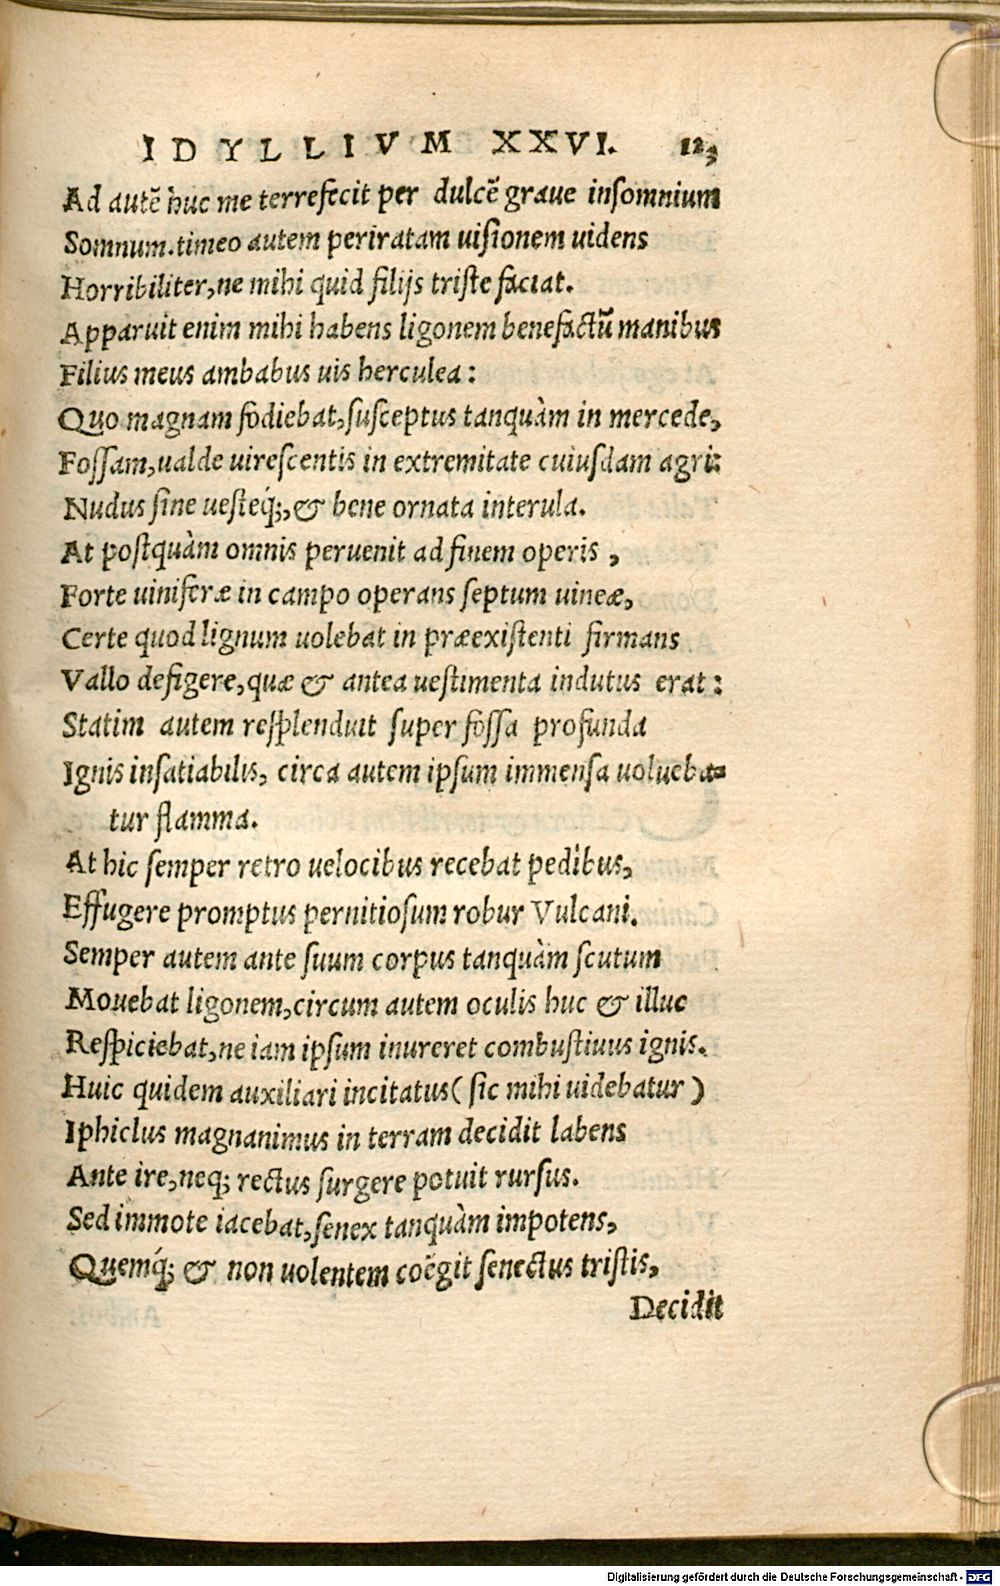 IDYLLIVM XXVI. 123
Ad autē huc me terrefecit per dulcē graue insomnium
Somnum.timeo autem periratam uisionem uidens
Horribiliter,ne mihi quid filijs triste faciat.
Apparuit enim mihi habens ligonem benefactū manibus
Filius meus ambabus uis herculea:
Quo magnam fodiebat,susceptus tanquàm in mercede,
Fossam,ualde uirescentis in extremitate cuiusdam agri:
Nudus sine uesteq́;,& bene ornata interula.
At postquàm omnis peruenit ad finem operis ,
Forte uiniferæ in campo operans septum uineæ,
Certe quod lignum uolebat in præexistenti firmans
Vallo defigere,quæ & antea uestimenta indutus erat:
Statim autem resplenduit super fossa profunda
Ignis insatiabilis, circa autem ipsum immensa uolueba=
tur flamma.
At hic semper retro uelocibus recebat pedibus,
Effugere promptus pernitiosum robur Vulcani.
Semper autem ante suum corpus tanquàm scutum
Mouebat ligonem,circum autem oculis huc & illuc
Respiciebat,ne iam ipsum inureret combustiuus ignis.
Huic quidem auxiliari incitatus( sic mihi uidebatur )
Iphiclus magnanimus in terram decidit labens
Ante ire,neq; rectus surgere potuit rursus.
Sed immote iacebat,senex tanquàm impotens,
Quemq́; & non uolentem coëgit senectus tristis,
Decidit
Digitalisierung gefördert durch die Deutsche Forschungsgemeinschaft - DFG